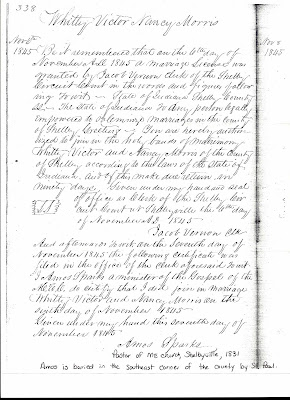 338
Whitley Victor Nancy Morris
Nov 6th
1845
Nov 8
1845
Be it remembered that on the 6th day of
November AD 1845 a marriage License was
granted by Jacob Vernon Clerk of the Shelby
Circuit Court in the words and figures follow
ing to wit State of Indiana Shelby County
Sct The State of Indiana To Any person legally
empowered to Solemnize marriages in the County
of Shelby Greeting You are hereby author
ized to join in the holy bands of matrimony
Whitley Victor and Nancy Morris of the County
of Shelby according to the laws of the State of
Indiana and of this make due return in
ninety days Given under my hand and seal
of office as Clerk of the Shelby Cir
cuit Court at Shelbyville the 6th day
of November AD 1845
Jacob Vernon Clk
And afterwards to wit on the Seventh day of
November 1845 the following certificate was
filed in the office of the Clerk aforesaid to wit
I Amos Sparks a minister of the Gospel of the
M.E.Ch. do certify that I did join in marriage
Whitley Victor and Nancy Morris on the
sixth day of November 1845
Given under my hand this seventh day of
November 1845
Amos Sparks
Pastor of ME church, Shelbyville, 1831
Amos is buried in the southeast corner of the county by St. Paul.